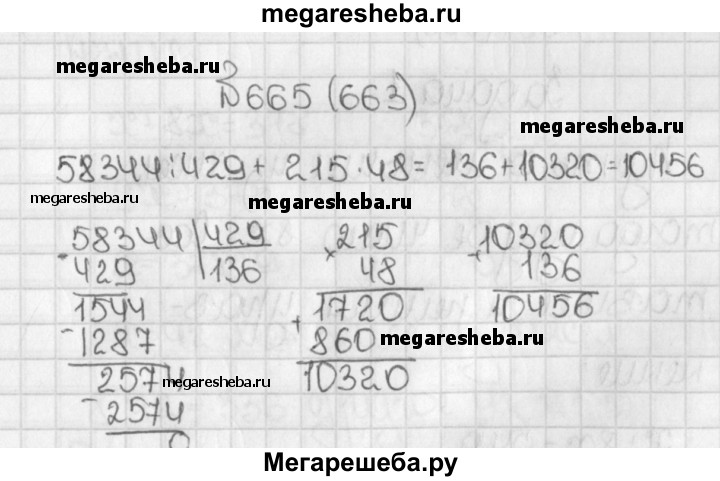 megaresheba.ru
megaresheba.ru
№665 (663)
megaresheba.ru
58344:429+ 215·48= 136+10320=10456
megaresheba.ru
megaresheba.ru
58344 429 215 10320
- 429 136 × 48 + 136
1544 1720 10456
- 1287 + 860 megaresheba.ru
2574 megaresheba.ru 10320
- 2574
0
Мегарешеба.ру